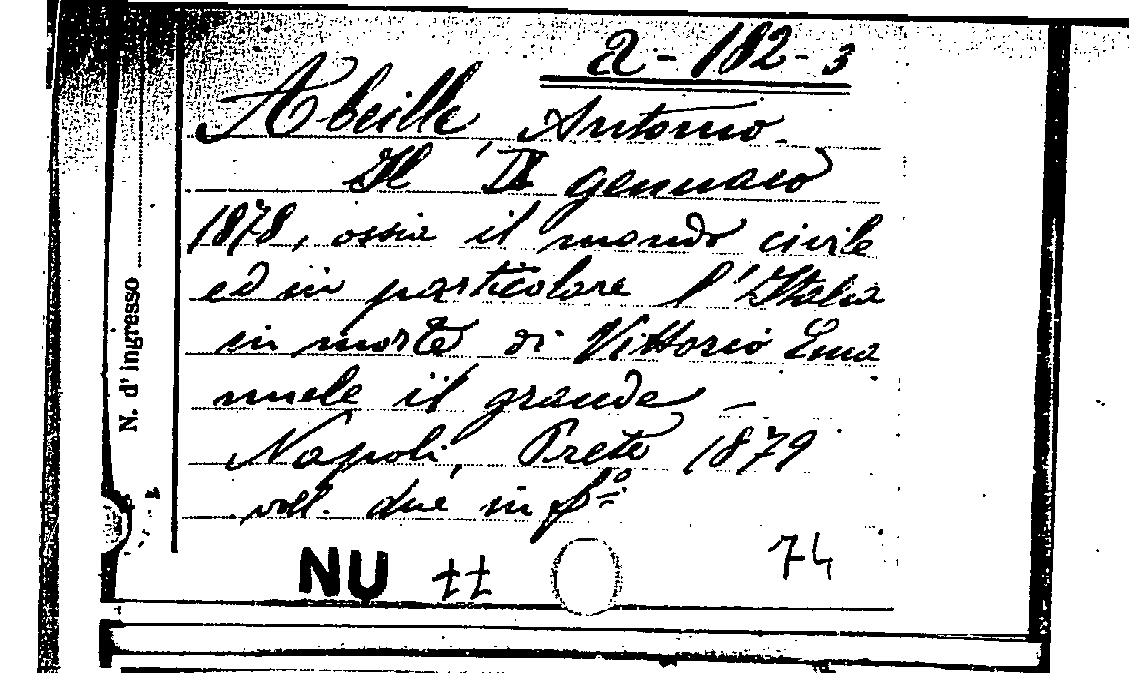 a - 182 - 3
Abeille, Antonio.
Il IX gennaio
1878, ossia il mondo civile
ed in particolare l'Italia
in morte di Vittorio Ema
nuele il grande —
Napoli, Prete 1879
voll. due in fº
N. d'ingresso
NU tt 74